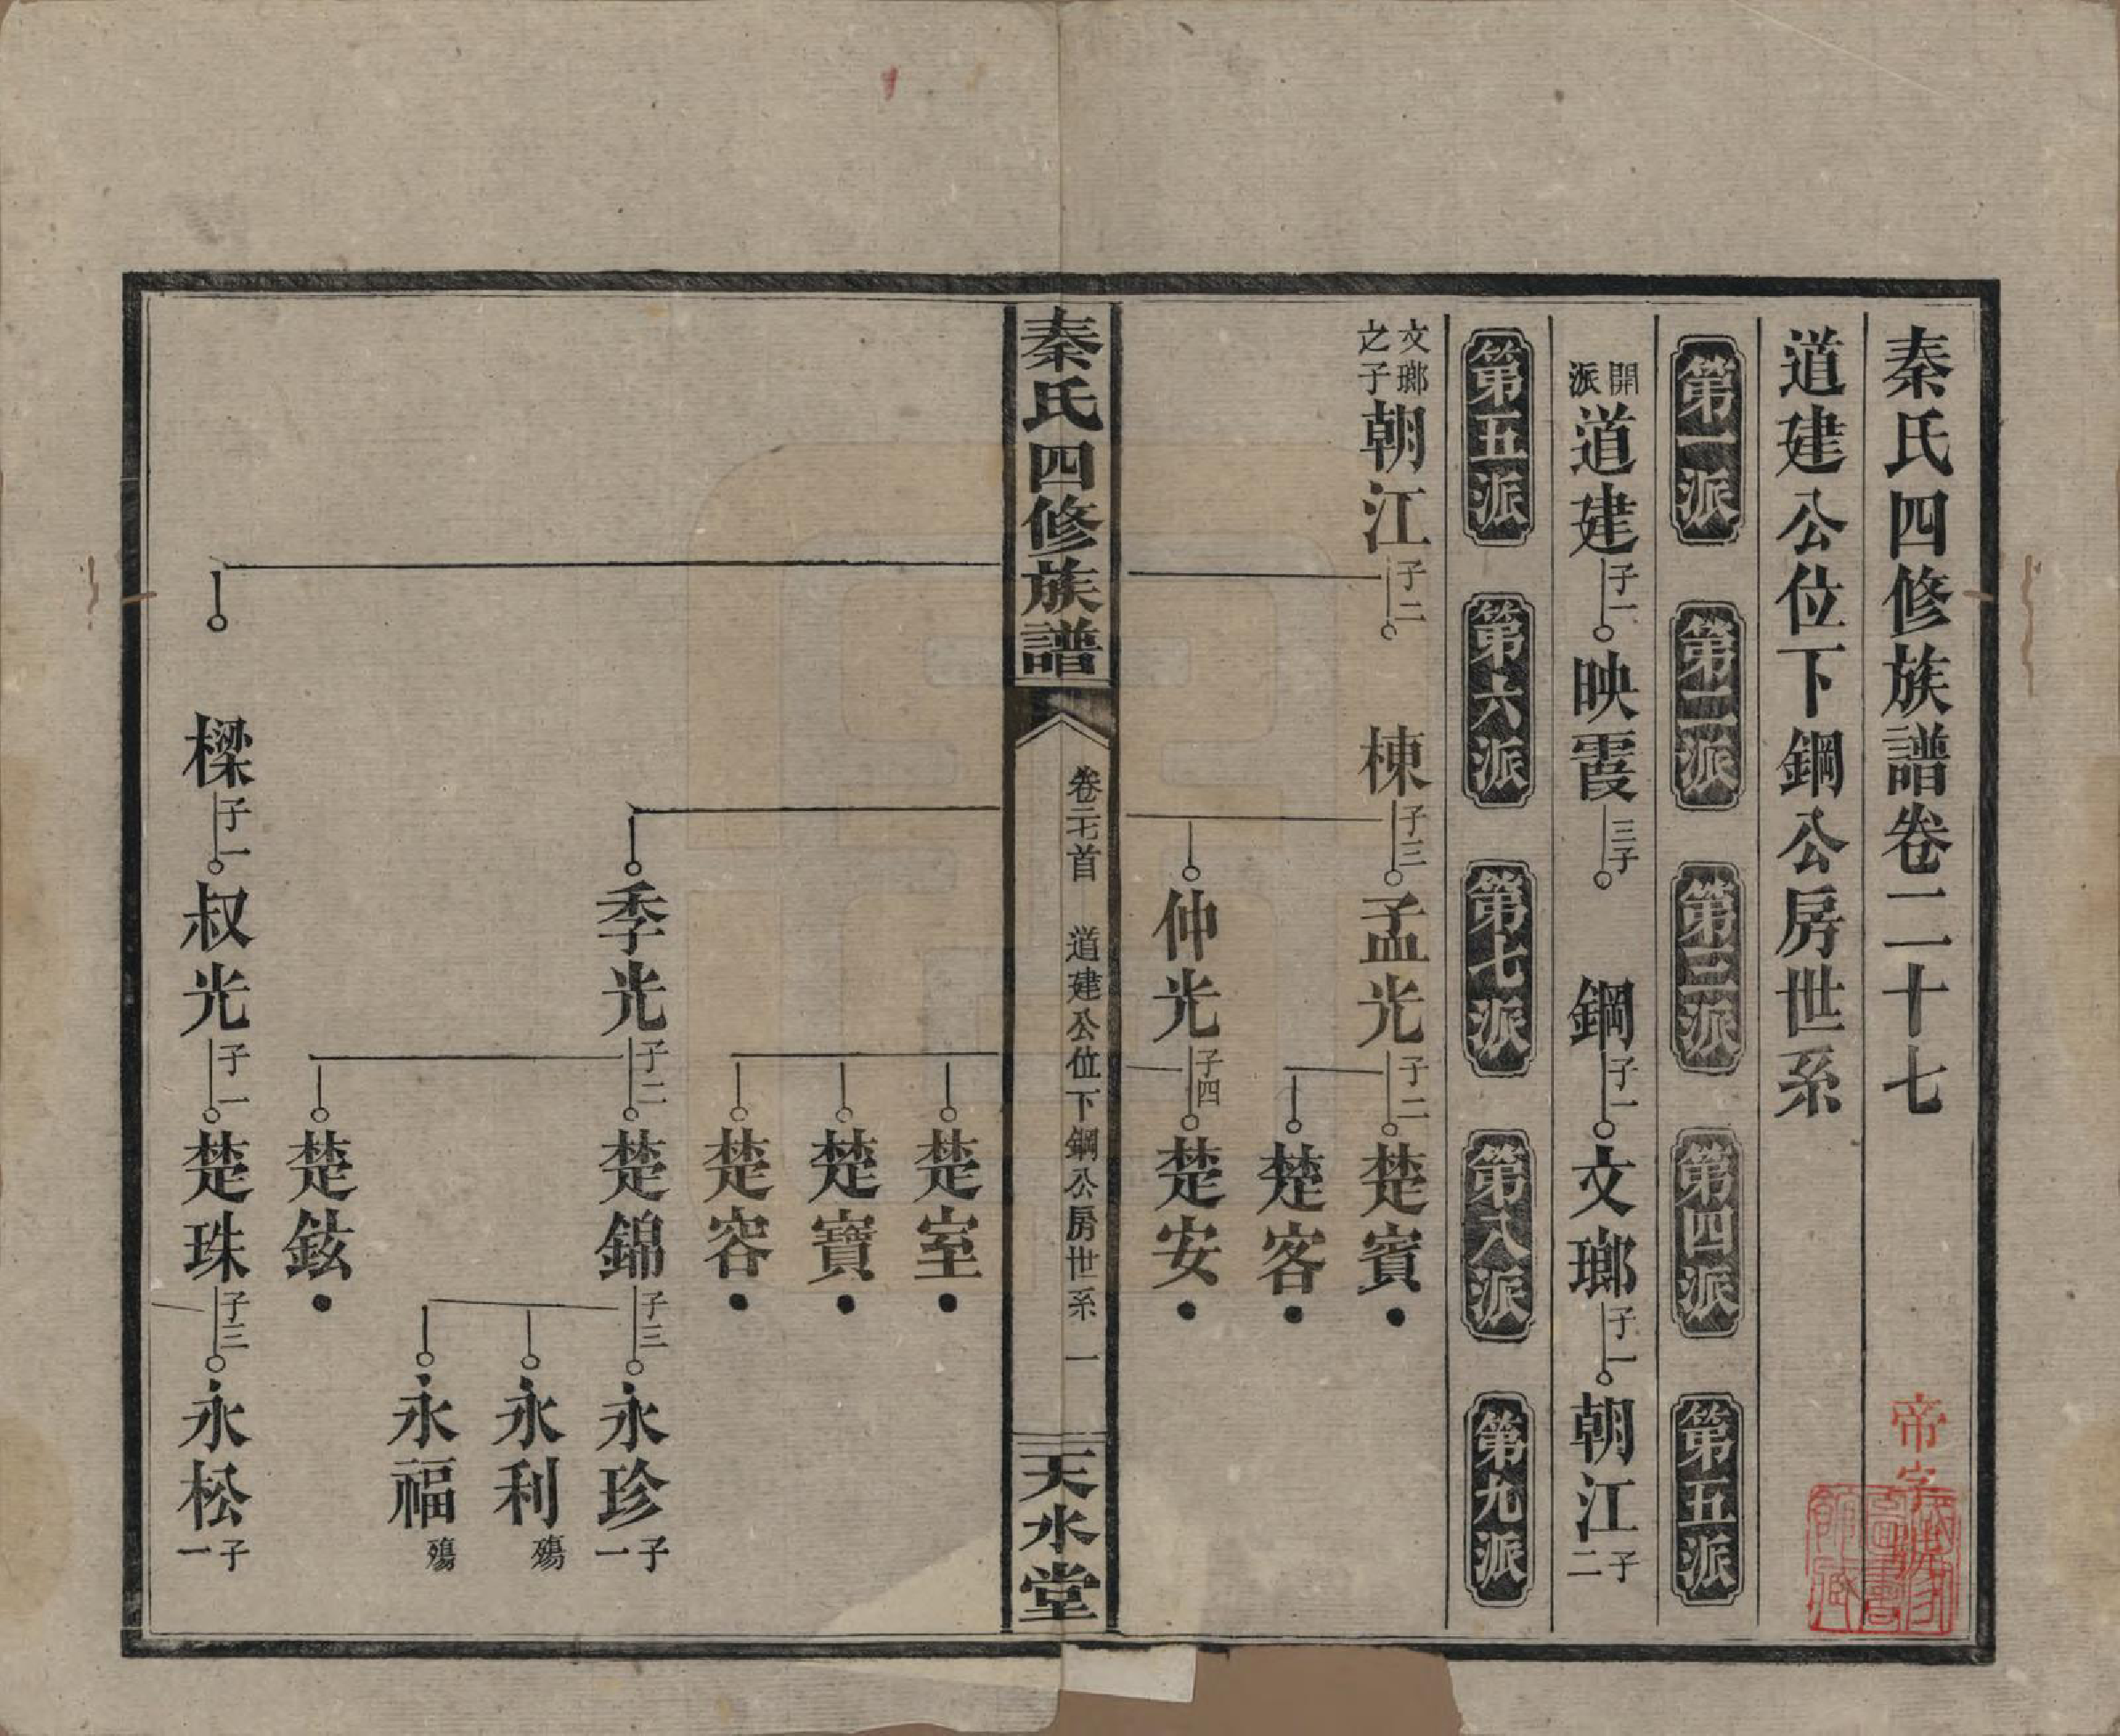 秦氏四修族譜卷二十七
帝字
道建公位下鋼公房世系
第一派
第二派
第三派
第四派
第五派
開派
道建 子一
映霞 三子
鋼 子一
文瑯 子一
朝江 子二
第五派
第六派
第七派
第八派
第九派
文瑯之子
朝江 子二
棟 子三
孟光 子二
楚賓
楚客
仲光 子四
楚安
秦氏四修族譜
卷二七首
道建公位下鋼公房世系
一
天水堂
楚室
楚寶
楚容
季光 子二
楚錦 子三
永珍 子一
永利 殤
永福 殤
楚鉉
樑 子一
叔光 子一
楚珠 子三
永松 子一